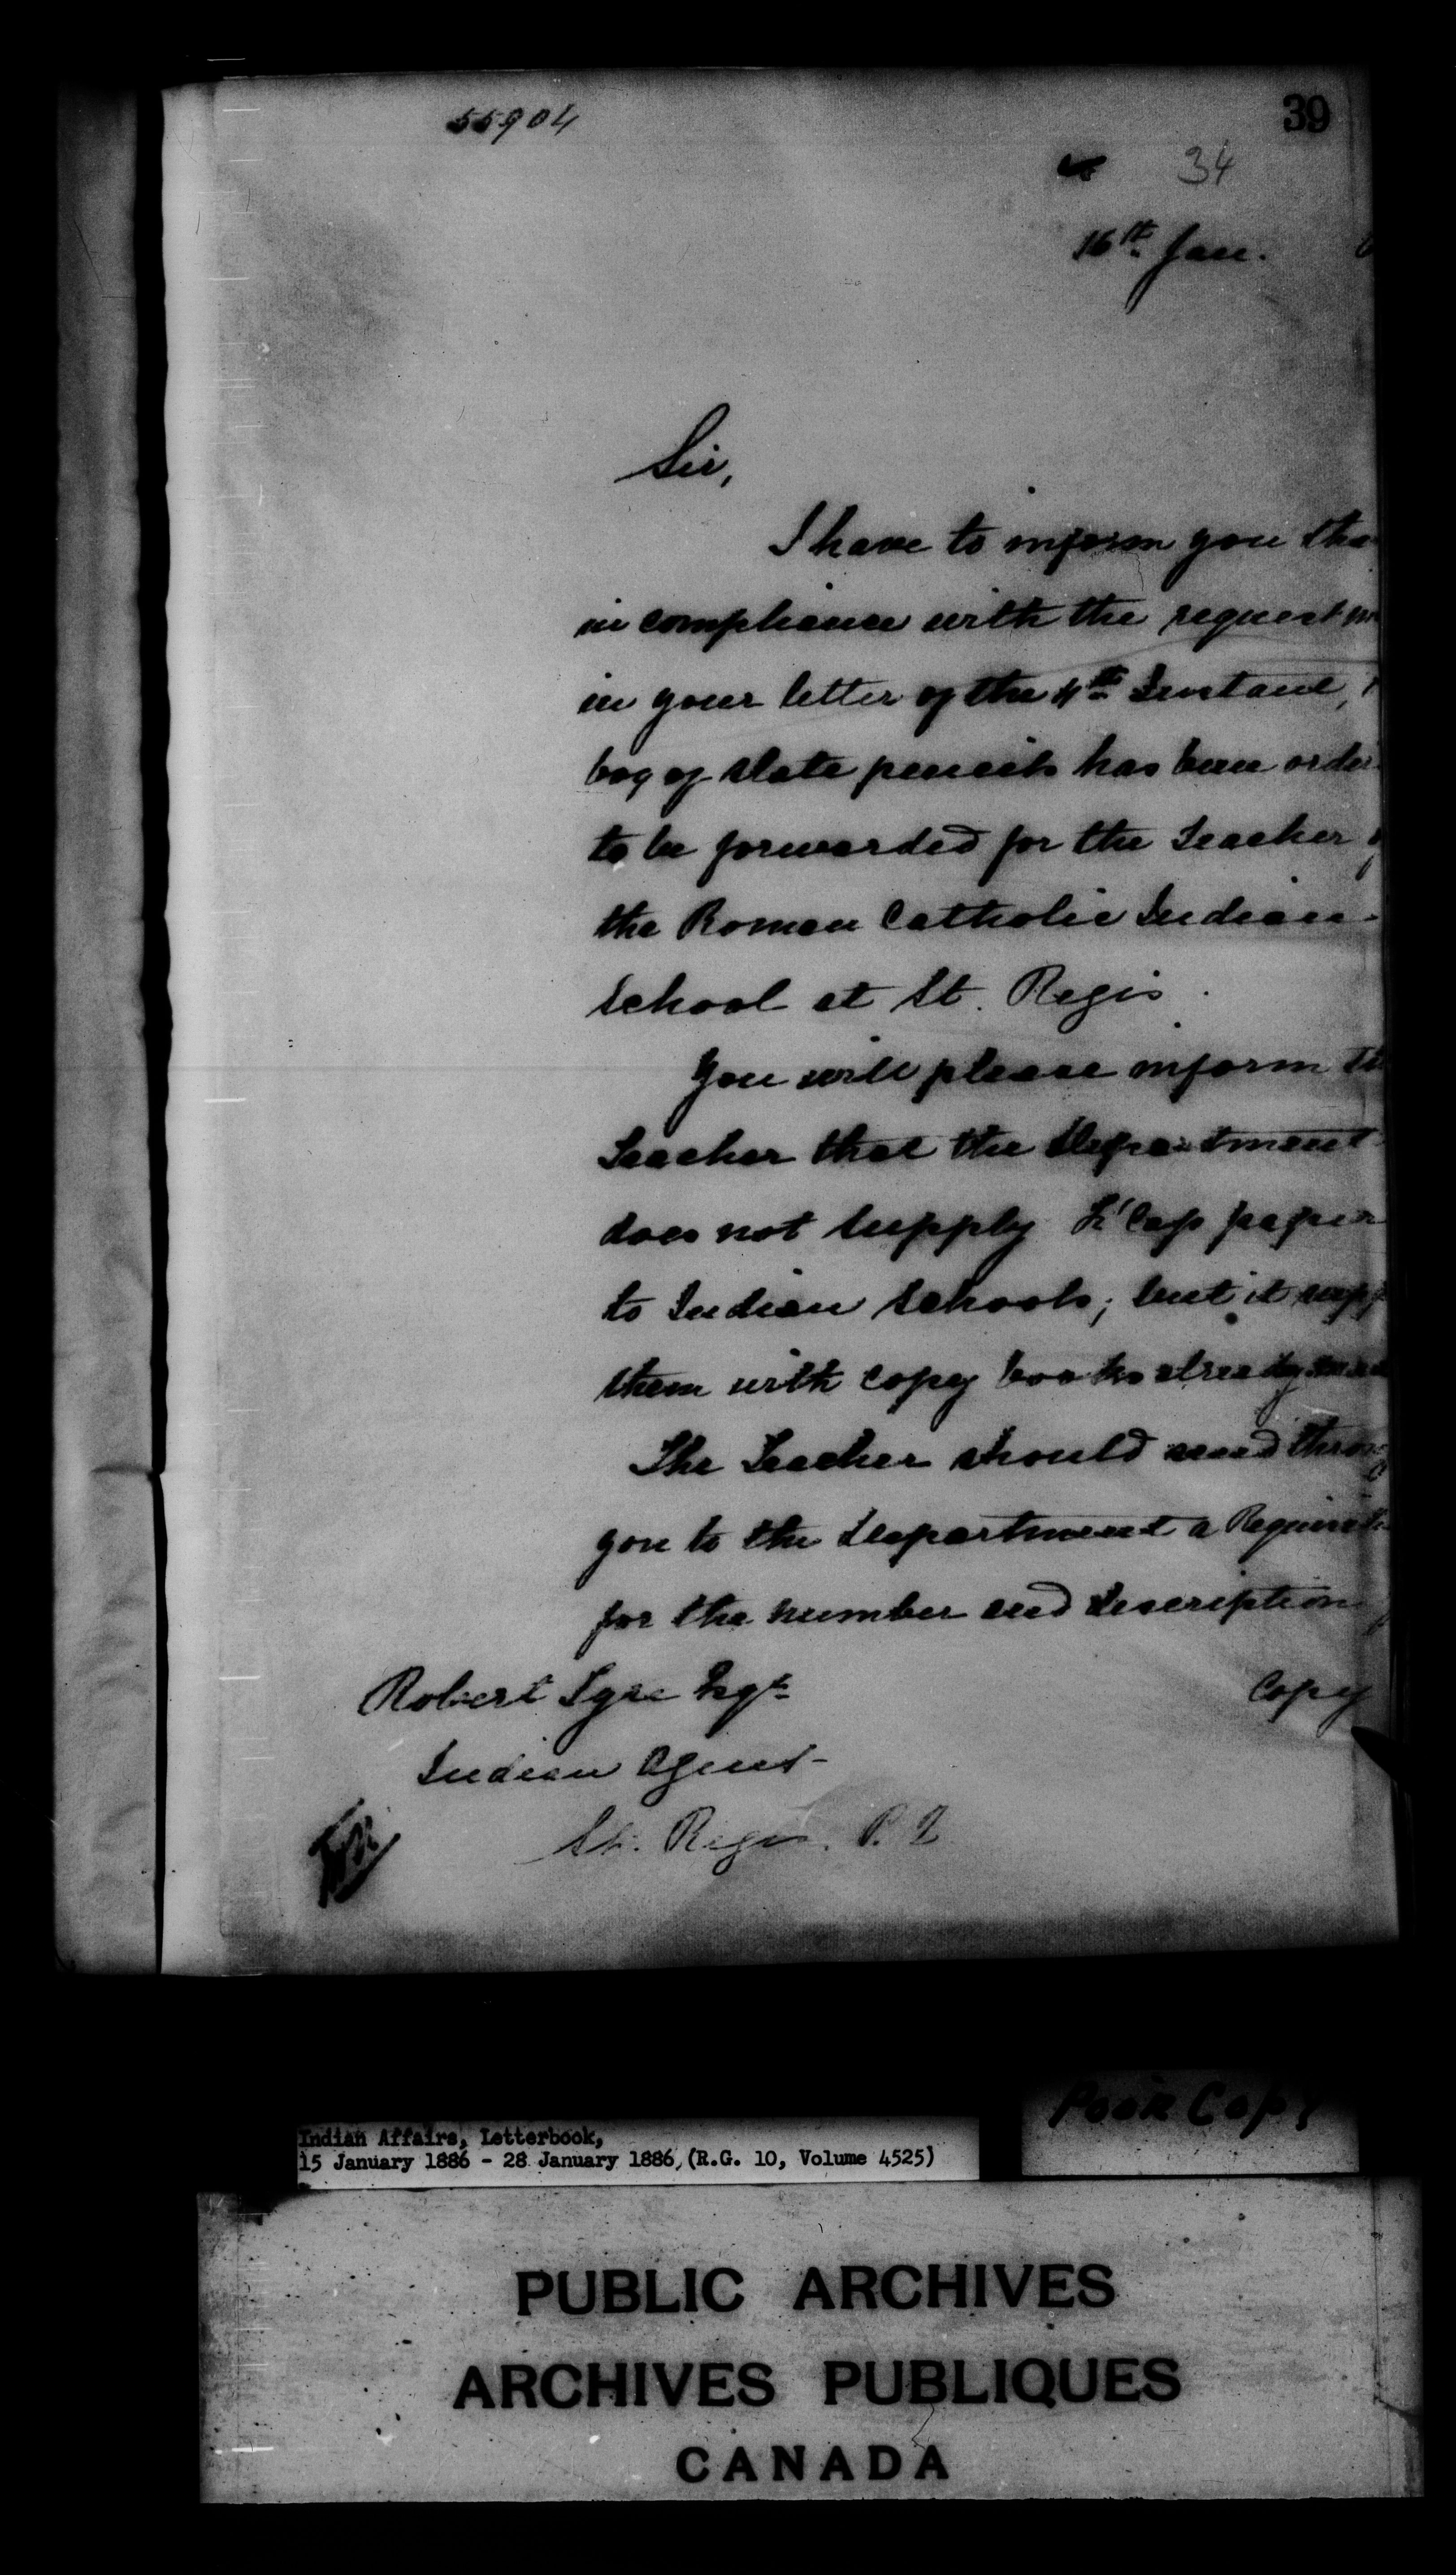 55904
39
34
16th Jan.
Sir,
I have to inform you tha
in compliance with the request
in your letter of the 4th Instant,
box of slate pencils has been order
to be forwarded for the Teacher
the Roman Catholic Indian
School at St. Regis.
You will please inform
Teacher that the Department
does not supply F'Cap paper
to Indian Schools; but it supp
them with copy books already
The Teacher should send throug
you to the Department a Requisiti
for the number and description
Copy
Robert Tyre Esqre
Indian Agent
St. Regis. P.Q
Poor Copy
Indian Affairs, Letterbook,
15 January 1886 - 28 January 1886, (R.G. 10, Volume 4525)
PUBLIC ARCHIVES
ARCHIVES PUBLIQUES
CANADA